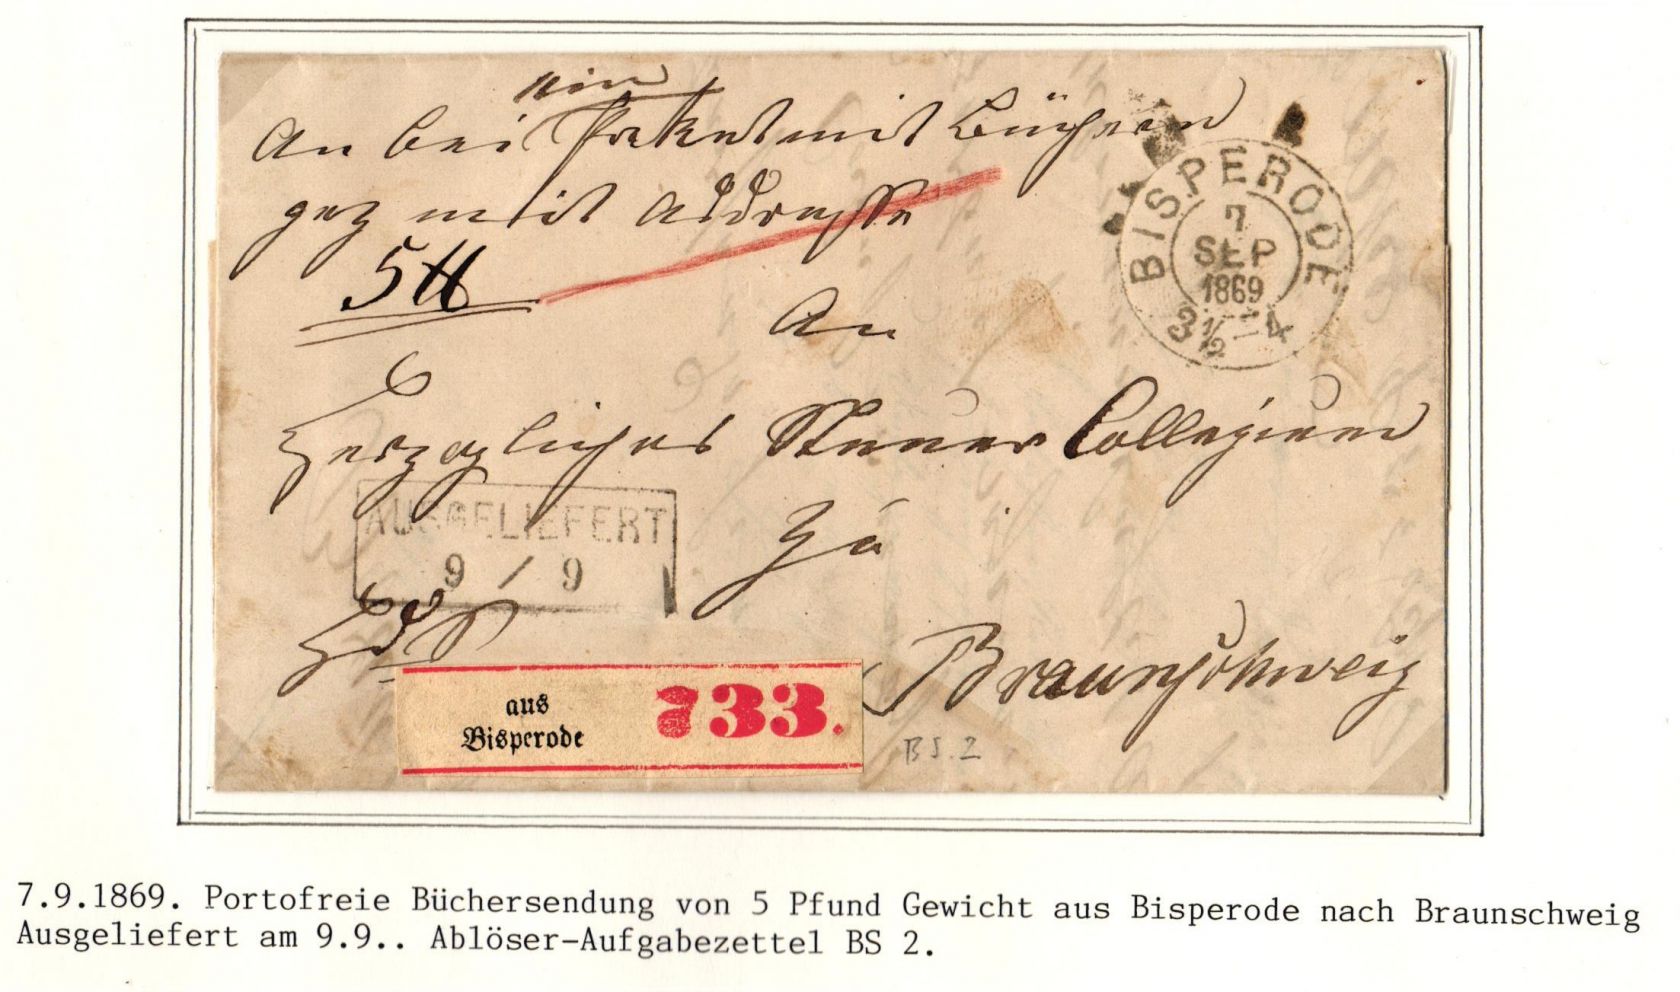 An bei ein Paket mit Büchern
gez mit Addresse
5 ℔
BISPERODE
7
SEP
1869
3½-4
An
Herzogliches Steuer Collegium
AUSGELIEFERT
9 / 9
zu
HdS
Braunschweig
aus
Bisperode
733.
BS.2
7.9.1869. Portofreie Büchersendung von 5 Pfund Gewicht aus Bisperode nach Braunschweig
Ausgeliefert am 9.9.. Ablöser-Aufgabezettel BS 2.